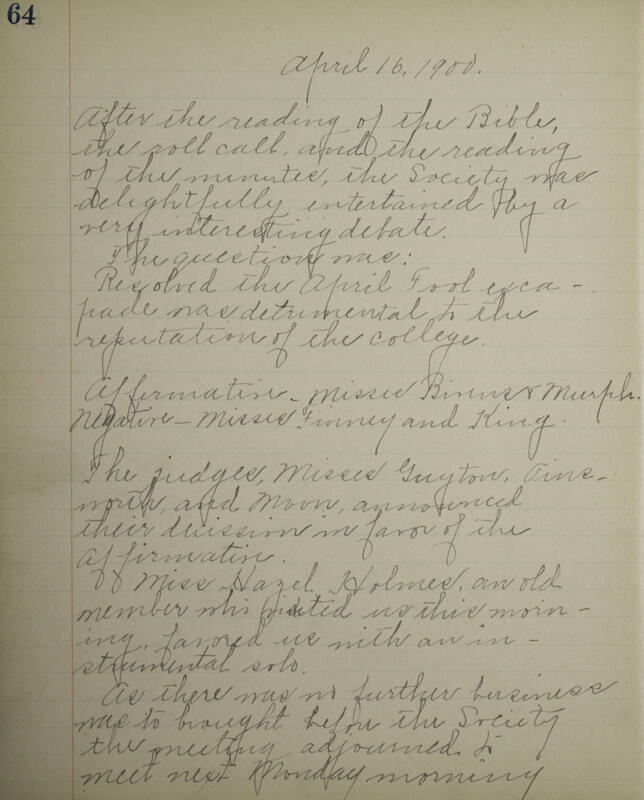 64
April 16, 1900.
After the reading of the Bible,
the roll call, and the reading
of the minutes, the Society was
delightfully entertained by a
very interesting debate.
The question was:
Resolved the April Fool esca-
pade was detrimental to the
reputation of the college.
Affirmative - Misses Bivens & Murph.
Negative - Misses Finney and King.
The judges, Misses Guyton, Ains-
worth, and Moon, announced
their decission in favor of the
affirmative.
Miss Hazel Holmes, an old
member who visited us this morn-
ing, favored us with an in-
strumental solo.
As there was no further business
was to brought before the Society
the meeting adjourned to
meet next Monday morning